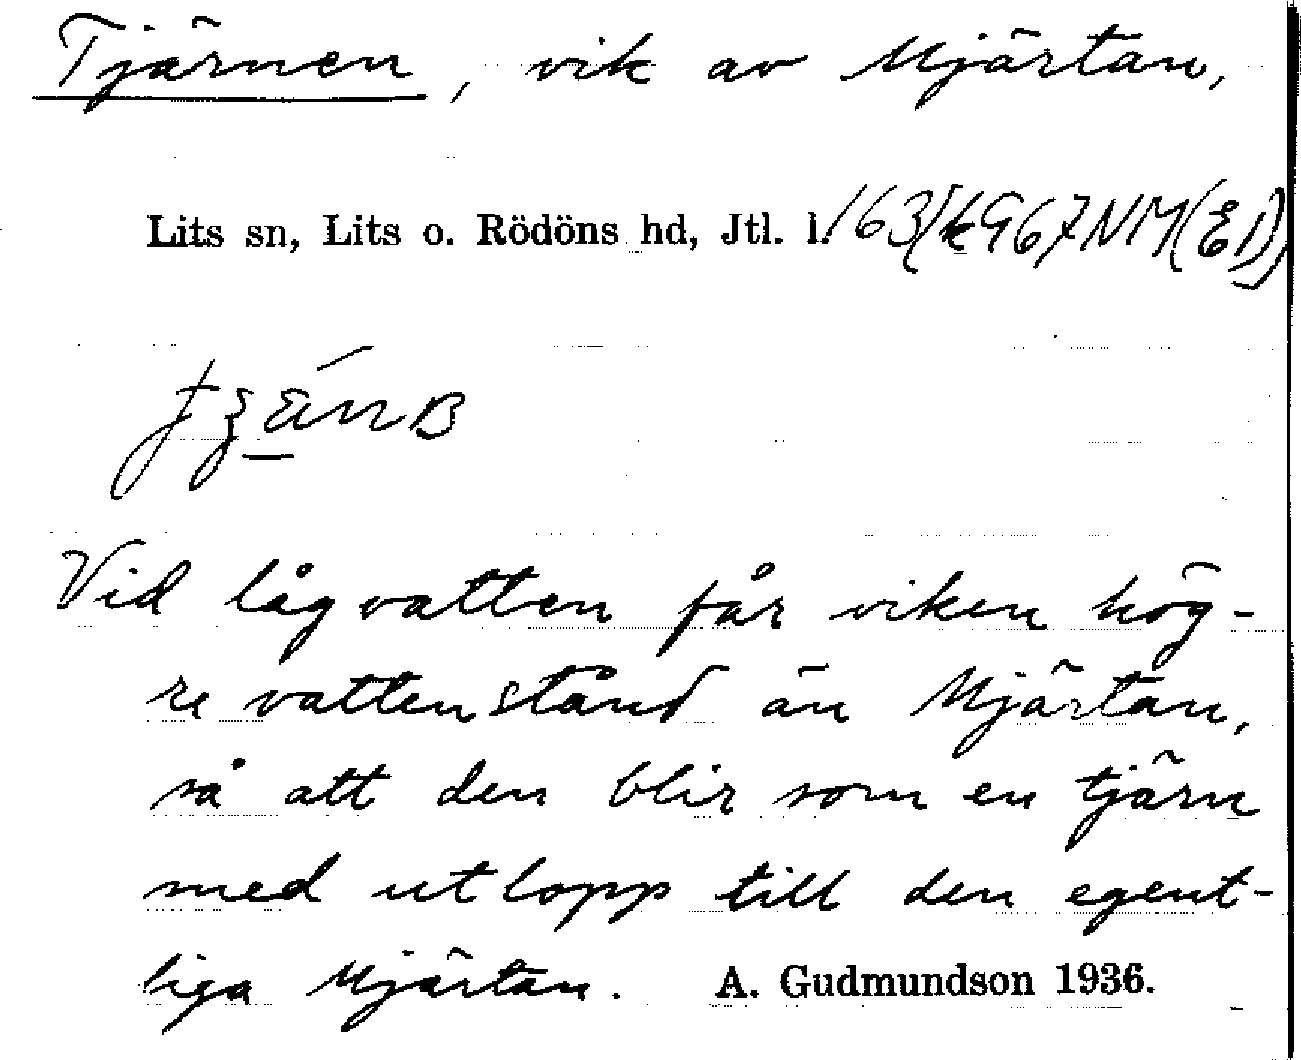 Tjärnen, vik av Mjärtan,
Lits sn, Lits o. Rödöns hd, Jtl. l.
Vid lågvatten får viken hög-
re vattenstånd än Mjärtan,
så att den blir som en tjärn
med utlopp till den egent-
liga Mjärtan. A. Gudmundson 1936.